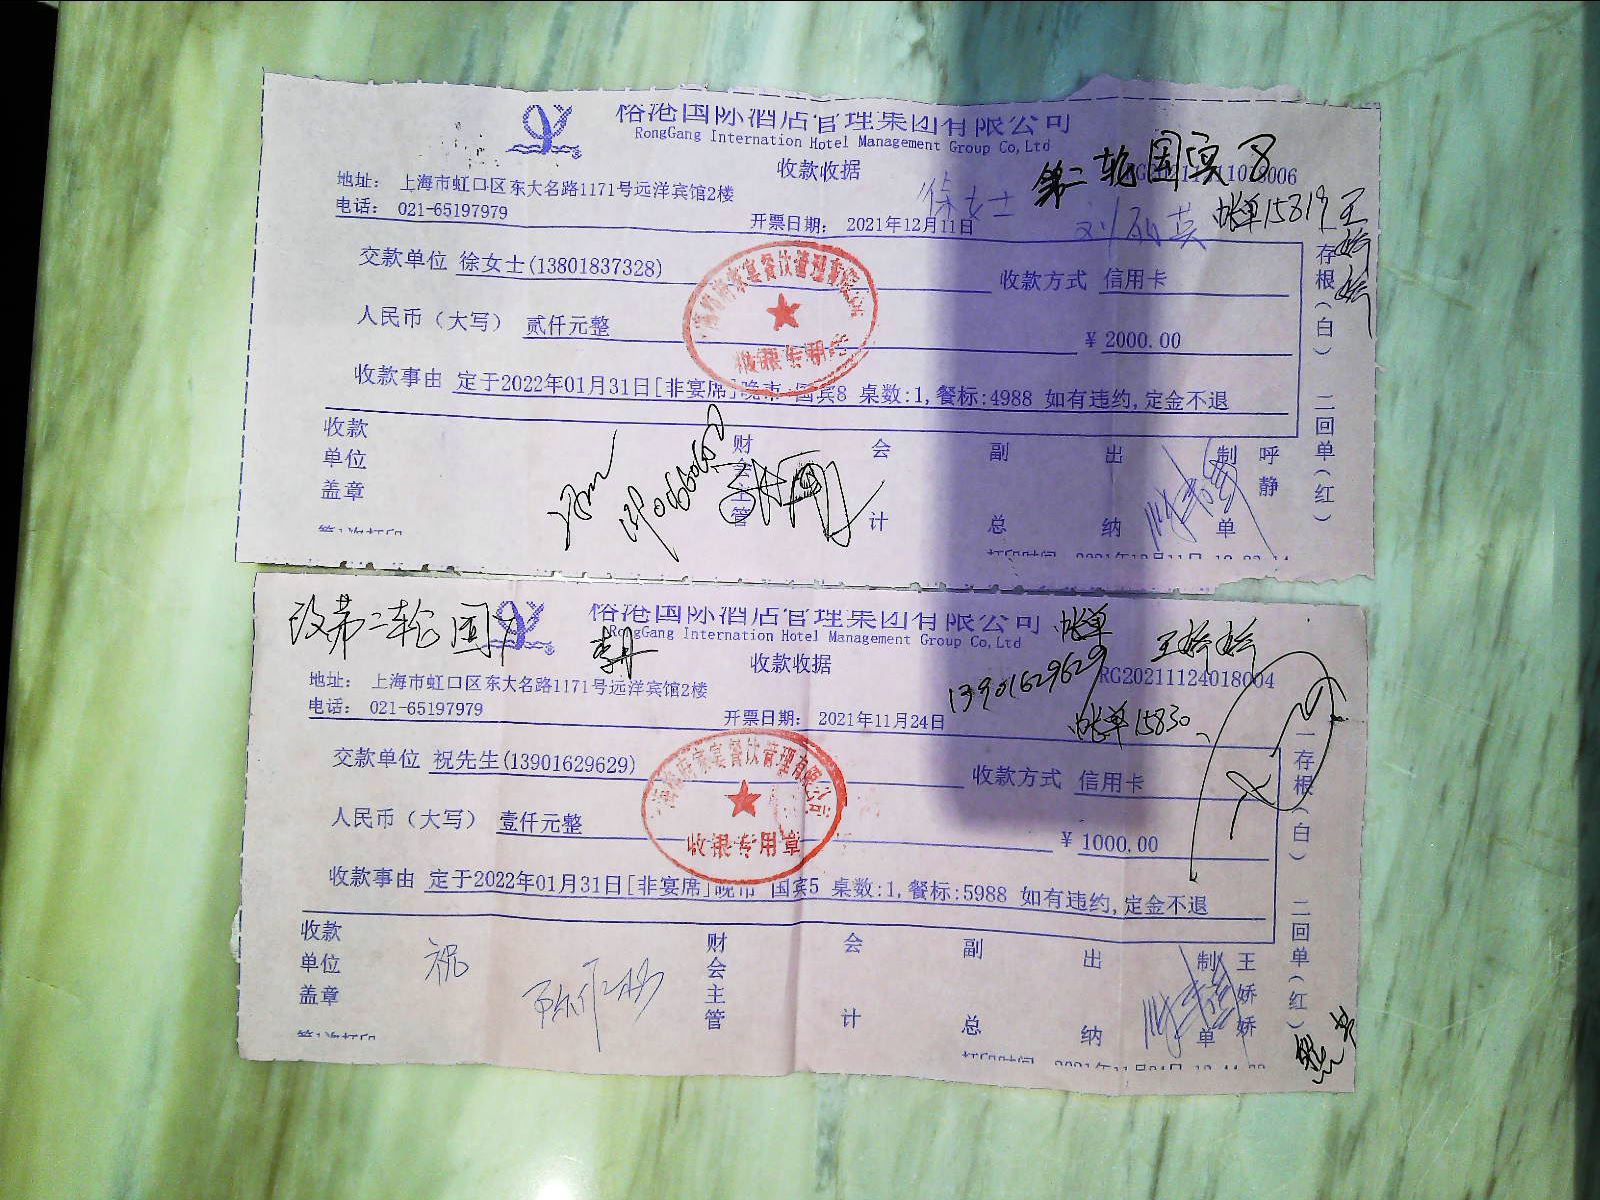 榕港国际酒店管理集团有限公司
RongGang Internation Hotel Management Group Co,Ltd
收款收据
第二轮 国宾 8
地址: 上海市虹口区东大名路1171号远洋宾馆2楼
徐女士
帐单15819 王娇娇
电话: 021-65197979
开票日期: 2021年12月11日
交款单位 徐女士(13801837328)
收款方式 信用卡
人民币(大写) 贰仟元整
¥ 2000.00
收款事由 定于2022年01月31日[非宴席]晚市 国宾8 桌数:1,餐标:4988 如有违约,定金不退
存根(白) 二回单(红)
收款单位盖章
财会主管
会计
副总
出纳
制单
呼静
收银专用章
第1次打印
打印时间 2021年12月11日
改第二轮 国
榕港国际酒店管理集团有限公司
RongGang Internation Hotel Management Group Co,Ltd
帐单
王娇娇
收款收据
13901629629
RG20211124018004
地址: 上海市虹口区东大名路1171号远洋宾馆2楼
帐单15830
电话: 021-65197979
开票日期: 2021年11月24日
交款单位 祝先生(13901629629)
收款方式 信用卡
人民币(大写) 壹仟元整
¥ 1000.00
收款事由 定于2022年01月31日[非宴席]晚市 国宾5 桌数:1,餐标:5988 如有违约,定金不退
一存根(白) 二回单(红)
收款单位盖章
祝
财会主管
会计
副总
出纳
制单
王娇娇
收银专用章
第1次打印
打印时间 2021年11月24日